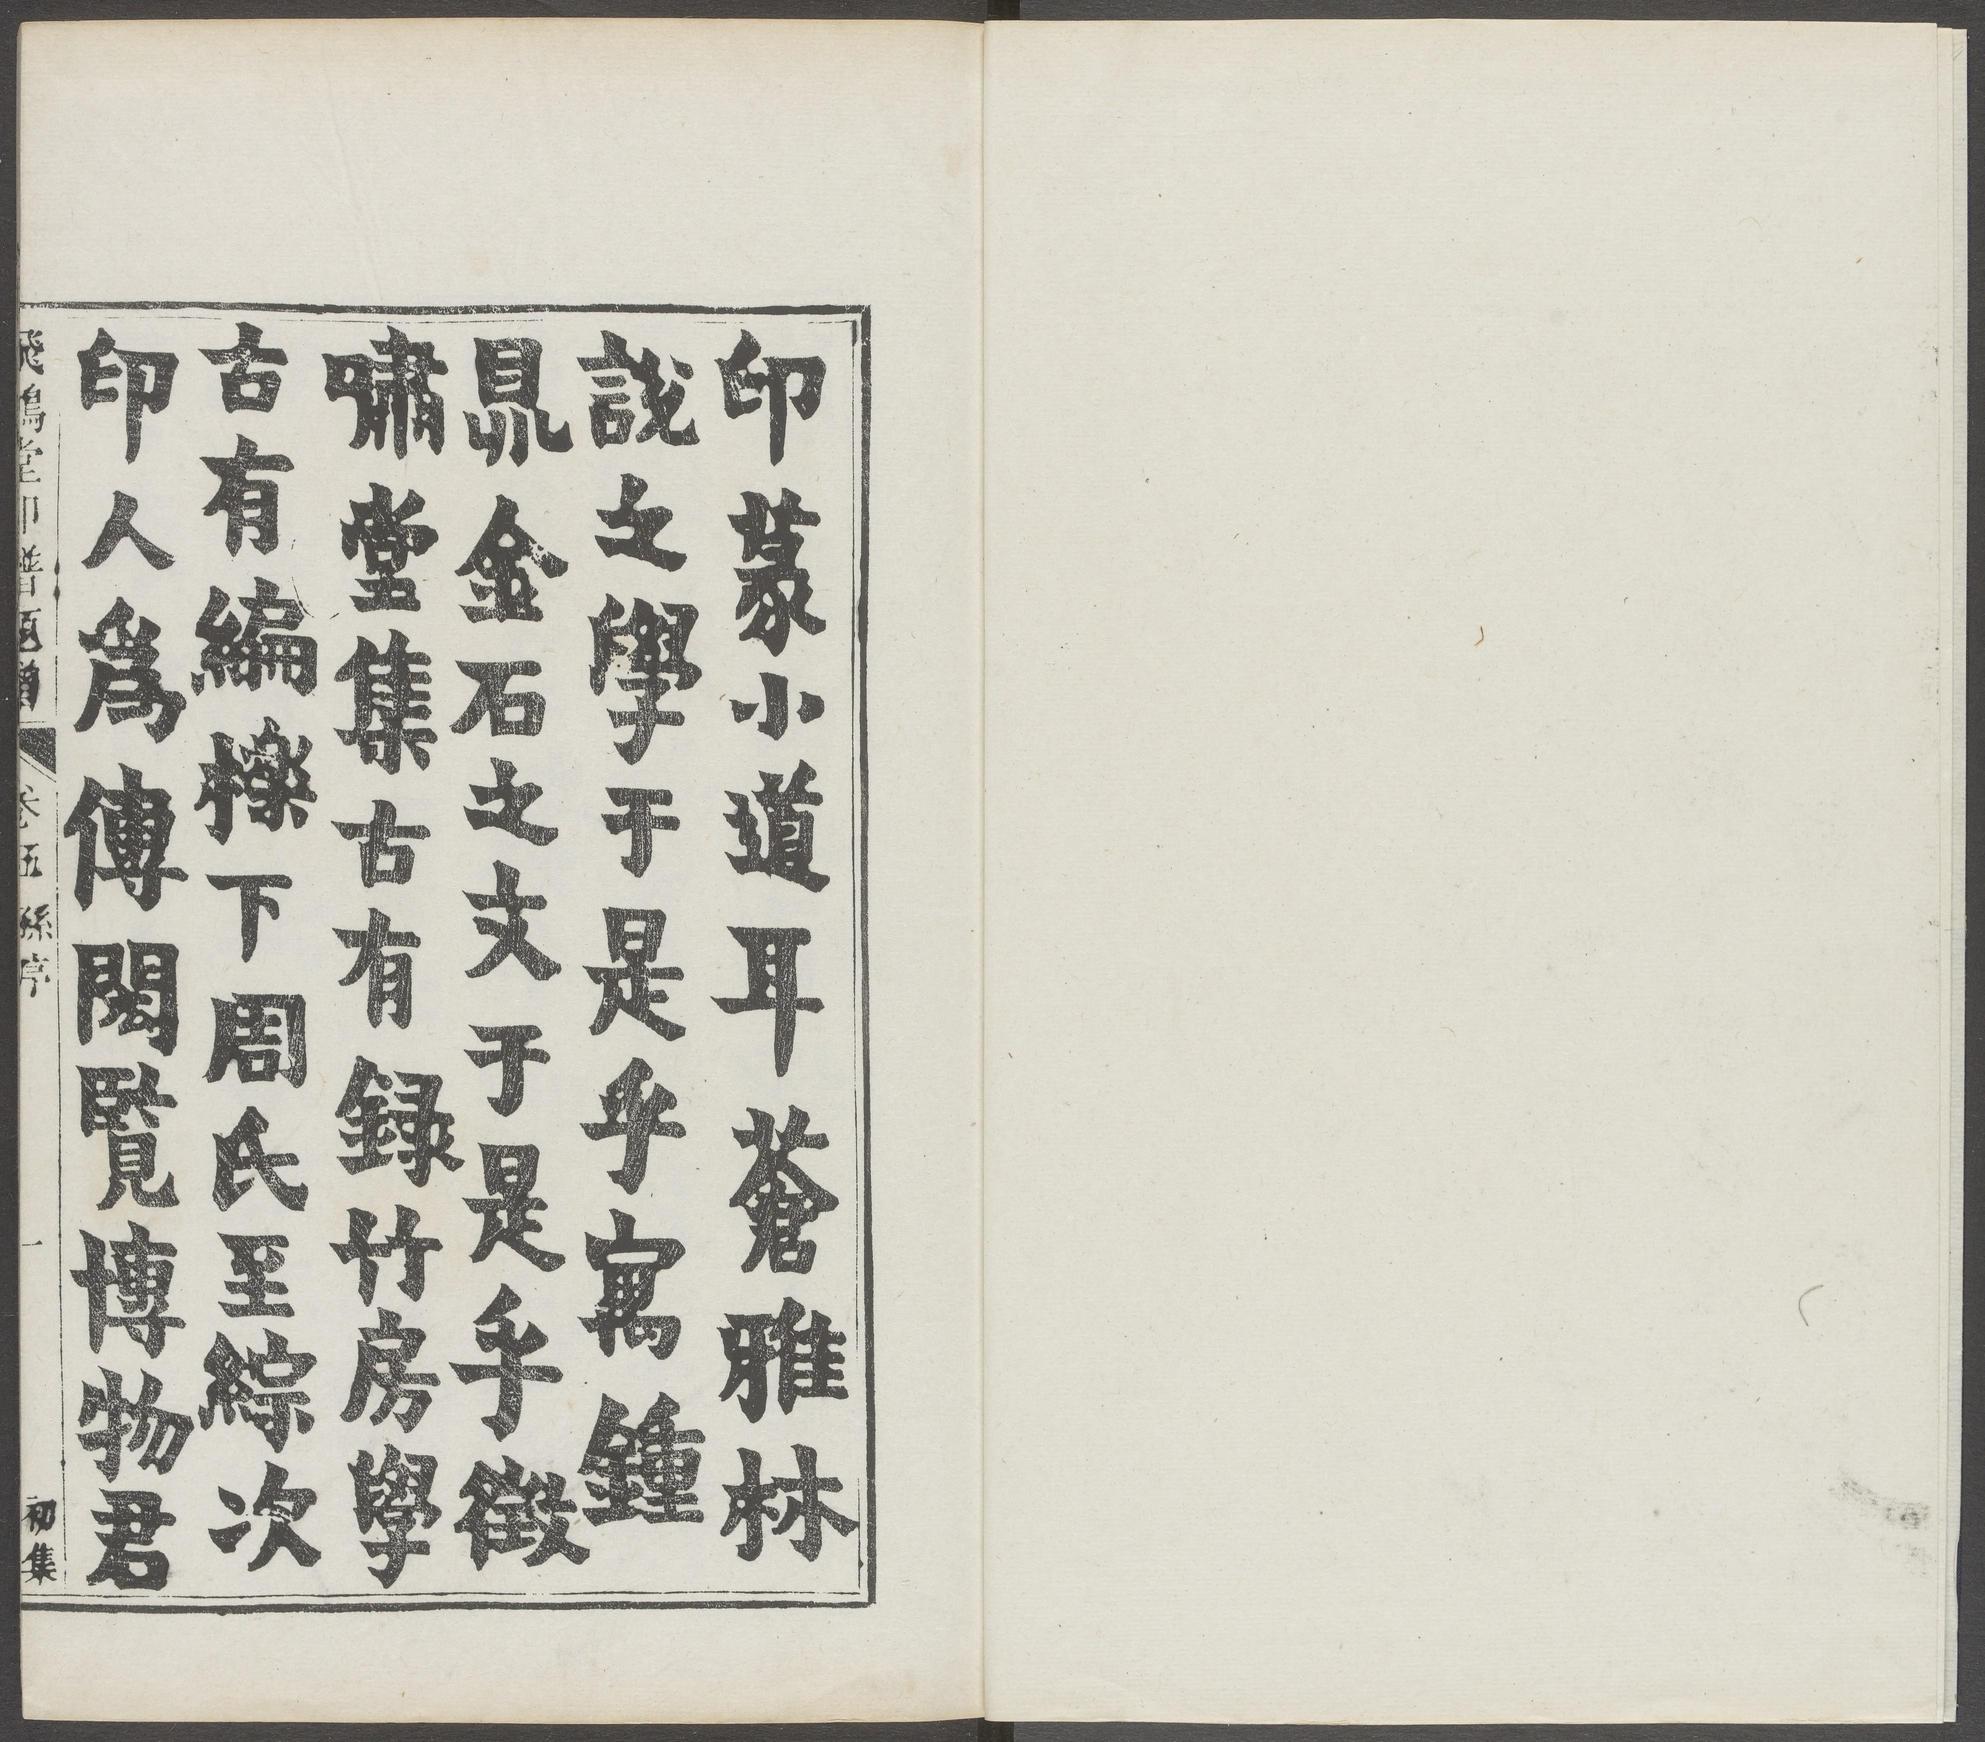 印篆小道耳蒼雅林
說之學于是乎寓鍾
鼎金石之文于是乎徵
嘯堂集古有録竹房學
古有編櫟下周氏至綜次
印人爲傳閎覽博物君
飛鴻堂印譜 卷五 孫序 一 初集